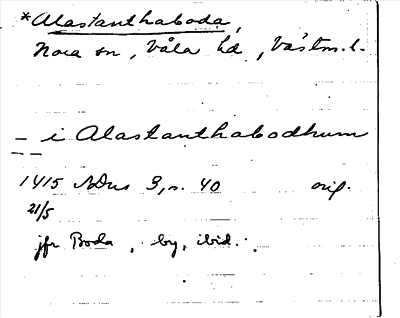 *Alastanthaboda,
Nora sn, Våla hd, Västm. l.
– i Alastanthabodhum
1415 SDns 3, s. 40 orig.
21/5
jfr Boda, by, ibid.